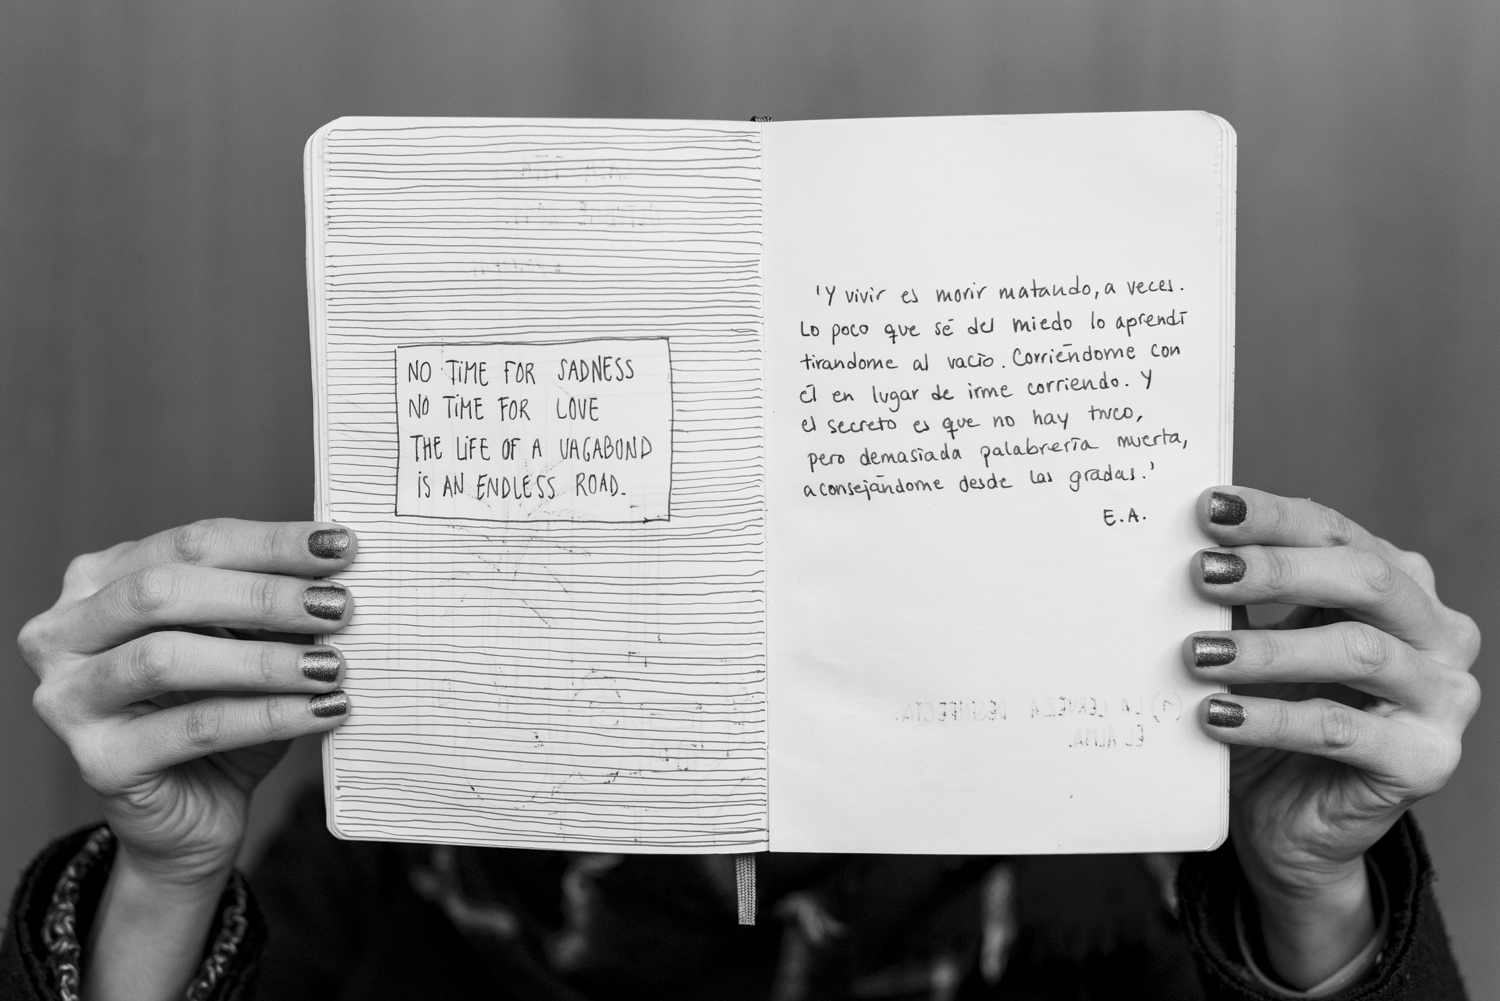 NO TIME FOR SADNESS
NO TIME FOR LOVE
THE LIFE OF A VAGABOND
IS AN ENDLESS ROAD.
'Y vivir es morir matando, a veces.
Lo poco que sé del miedo lo aprendí
tirándome al vacío. Corriéndome con
él en lugar de irme corriendo. Y
el secreto es que no hay truco,
pero demasiada palabrería muerta,
aconsejándome desde las gradas.'
E.A.
(1) LA CERVEZA DESINFECTA.
EL ALMA.